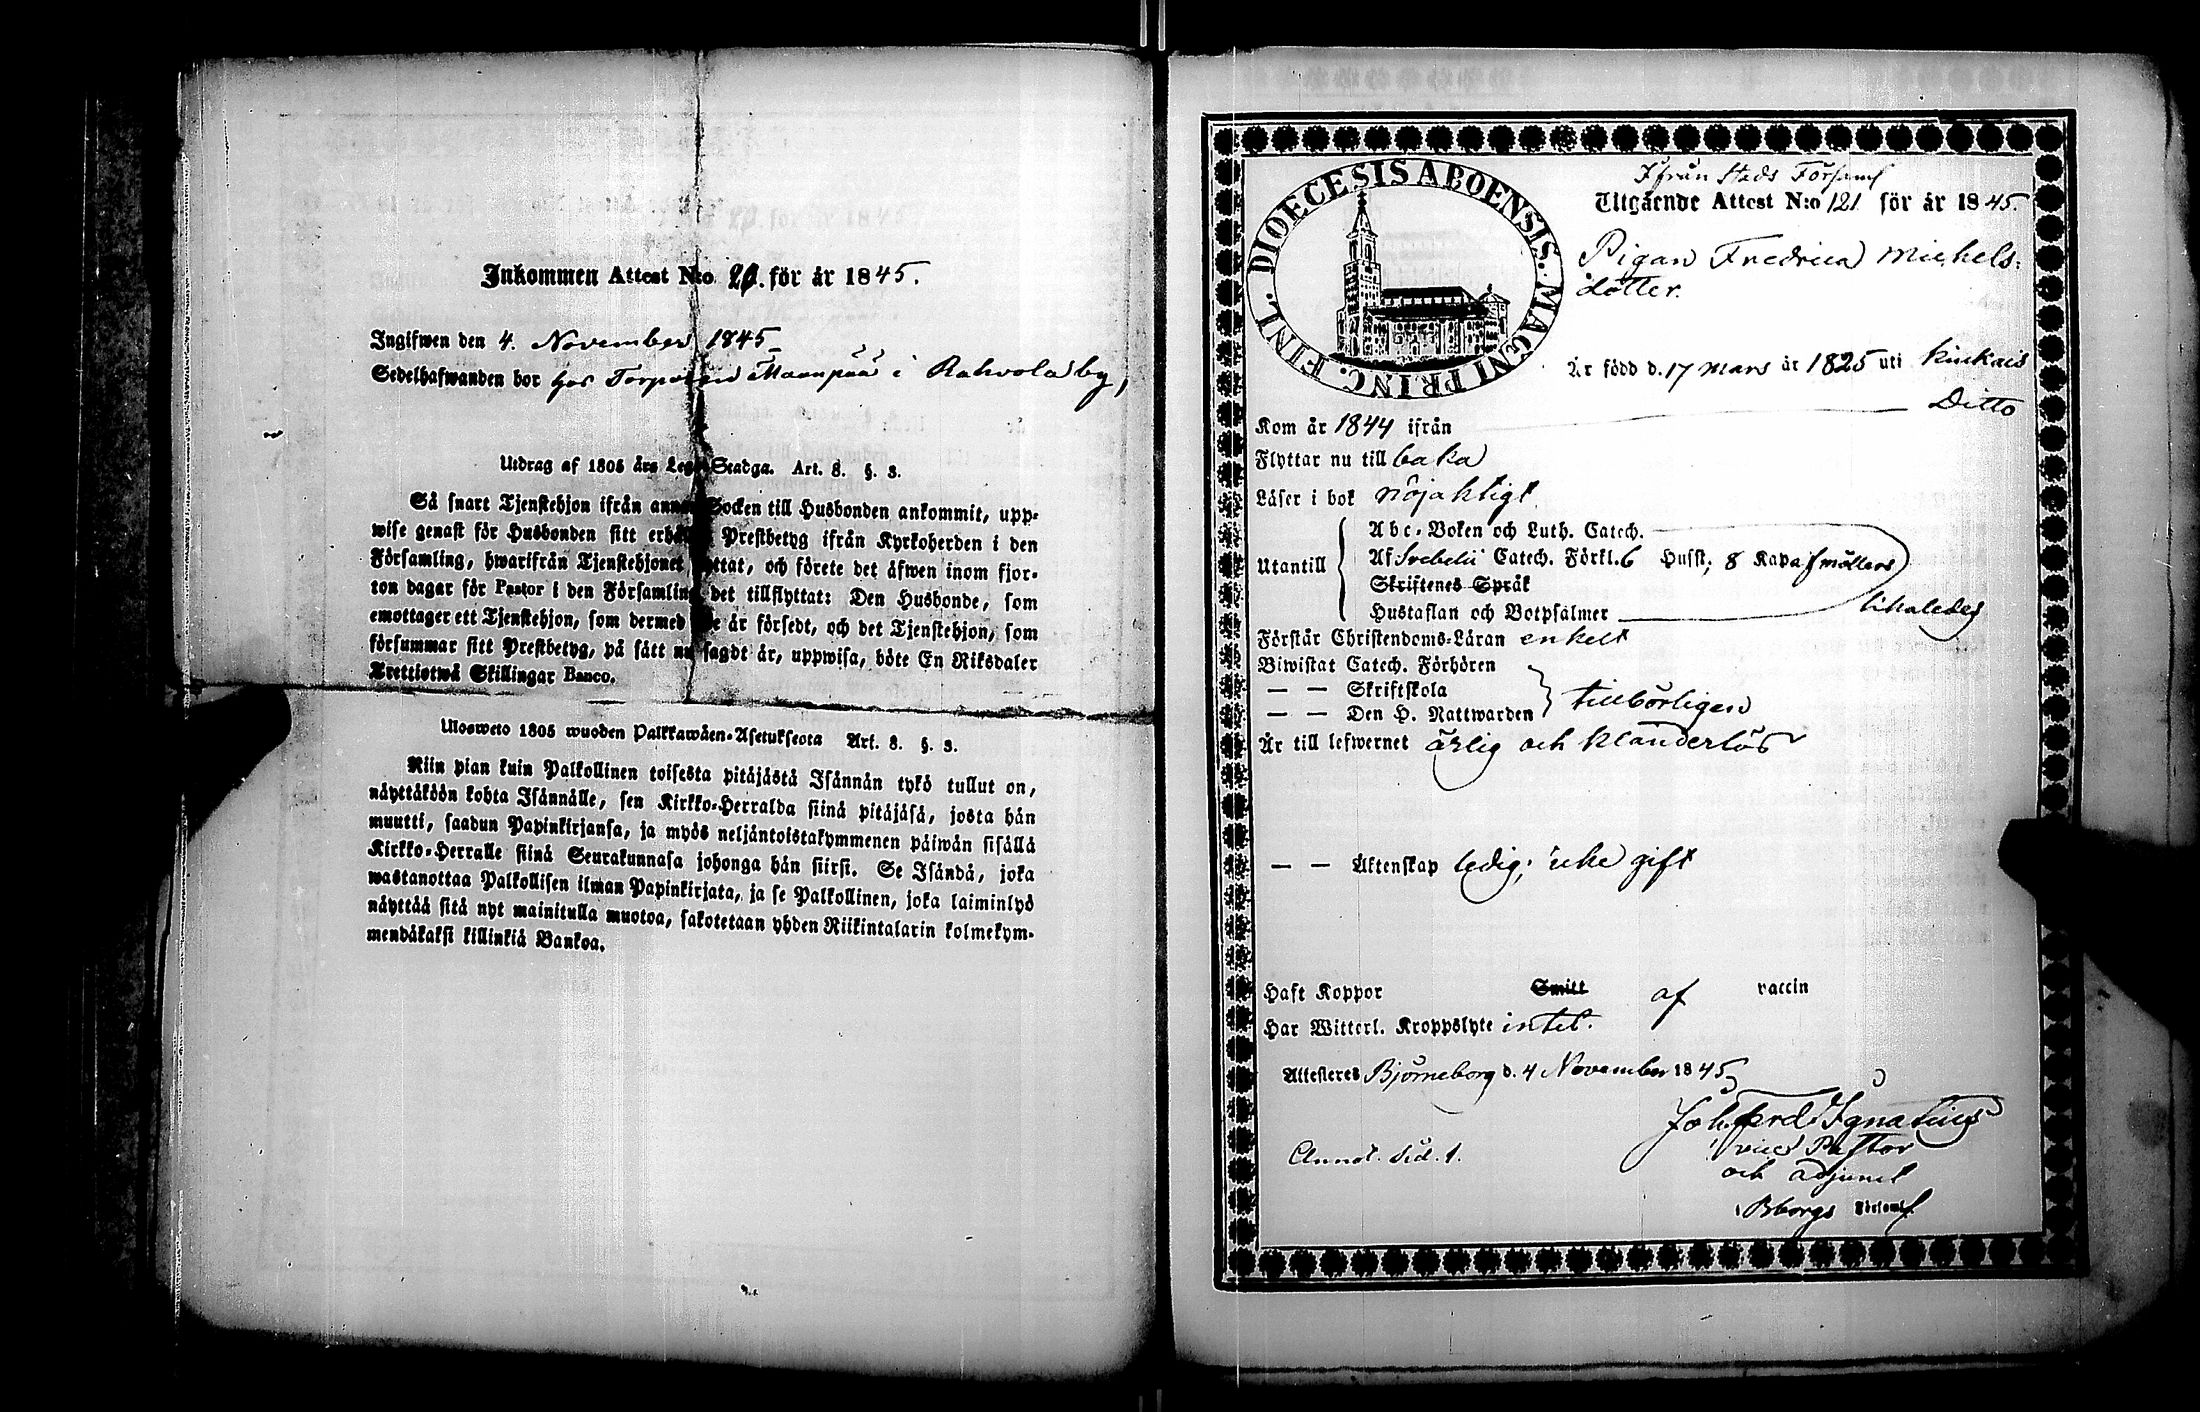 Inkommen Attest N:o 20. för år 1845.
Ingifwen den 4. November 1845
Sedelhafwanden bor hos Torparen Maanpää i Rahvola by,
Utdrag af 1805 års Lego-Stadga. Art. 8. §. 3.
Så snart Tjenstehjon ifrån annan Socken till Husbonden ankommit, upp-
wise genast för Husbonden sitt erhållna Prestbetyg ifrån Kyrkoherden i den
Församling, hwarifrån Tjenstehjonet flyttat, och förete det äfwen inom fjor-
ton dagar för Pastor i den Församling det tillflyttat: Den Husbonde, som
emottager ett Tjenstehjon, som dermed icke är försedt, och det Tjenstehjon, som
försummar sitt Prestbetyg, på sätt nu sagdt är, uppwisa, böte En Riksdaler
Trettiotwå Skillingar Banco.
Ulosweto 1805 wuoden Palkkawäen-Asetuksesta Art. 8. §. 3.
Niin pian kuin Palkollinen toisesta pitäjästä Isännän tykö tullut on,
näyttäköön kohta Isännälle, sen Kirkko-Herralda siinä pitäjäsä, josta hän
muutti, saadun Papinkirjansa, ja myös neljäntoistakymmenen päiwän sisällä
Kirkko-Herralle siinä Seurakunnasa johonga hän siirsi. Se Isändä, joka
wastanottaa Palkollisen ilman Papinkirjata, ja se Palkollinen, joka laiminlyö
näyttää sitä nyt mainitulla muotoa, sakotetaan yhden Riikintalarin kolmekym-
mendäkaksi killinkiä Bankoa.
DIOECESIS ABOENSIS. MAGNI PRINC. FINL.
Ifrån Stads Församl
Utgående Attest N:o 121 för år 1845.
Pigan Fredrica Michels-
dotter.
Är född d. 17 mars år 1825 uti Kinkais
Kom år 1844 ifrån Ditto
Flyttar nu till baka
Läser i bok nöjaktigt
Utantill
Abc-Boken och Luth. Catech.
Af Svebelii Catech. Förkl. 6 Husst; 8 Kapaf möllers
Skriftenes Språk
Hustaflan och Botpsalmer likaledes
Förstår Christendoms-Läran enkelt
Biwistat Catech. Förhören
— — Skriftskola
— — Den H. Nattwarden tillbörligen
Är till lefwernet ärlig och klanderlös
— — Äktenskap ledig; icke gift
Haft Koppor Smitt af vaccin
Har Witterl. Kroppslyte intet.
Attesteres Björneborg d. 4 November 1845
Joh. Ferd. Ignatius
vice Pastor
och adjunct
i Bborgs Församl.
Annot. Sid. 1.